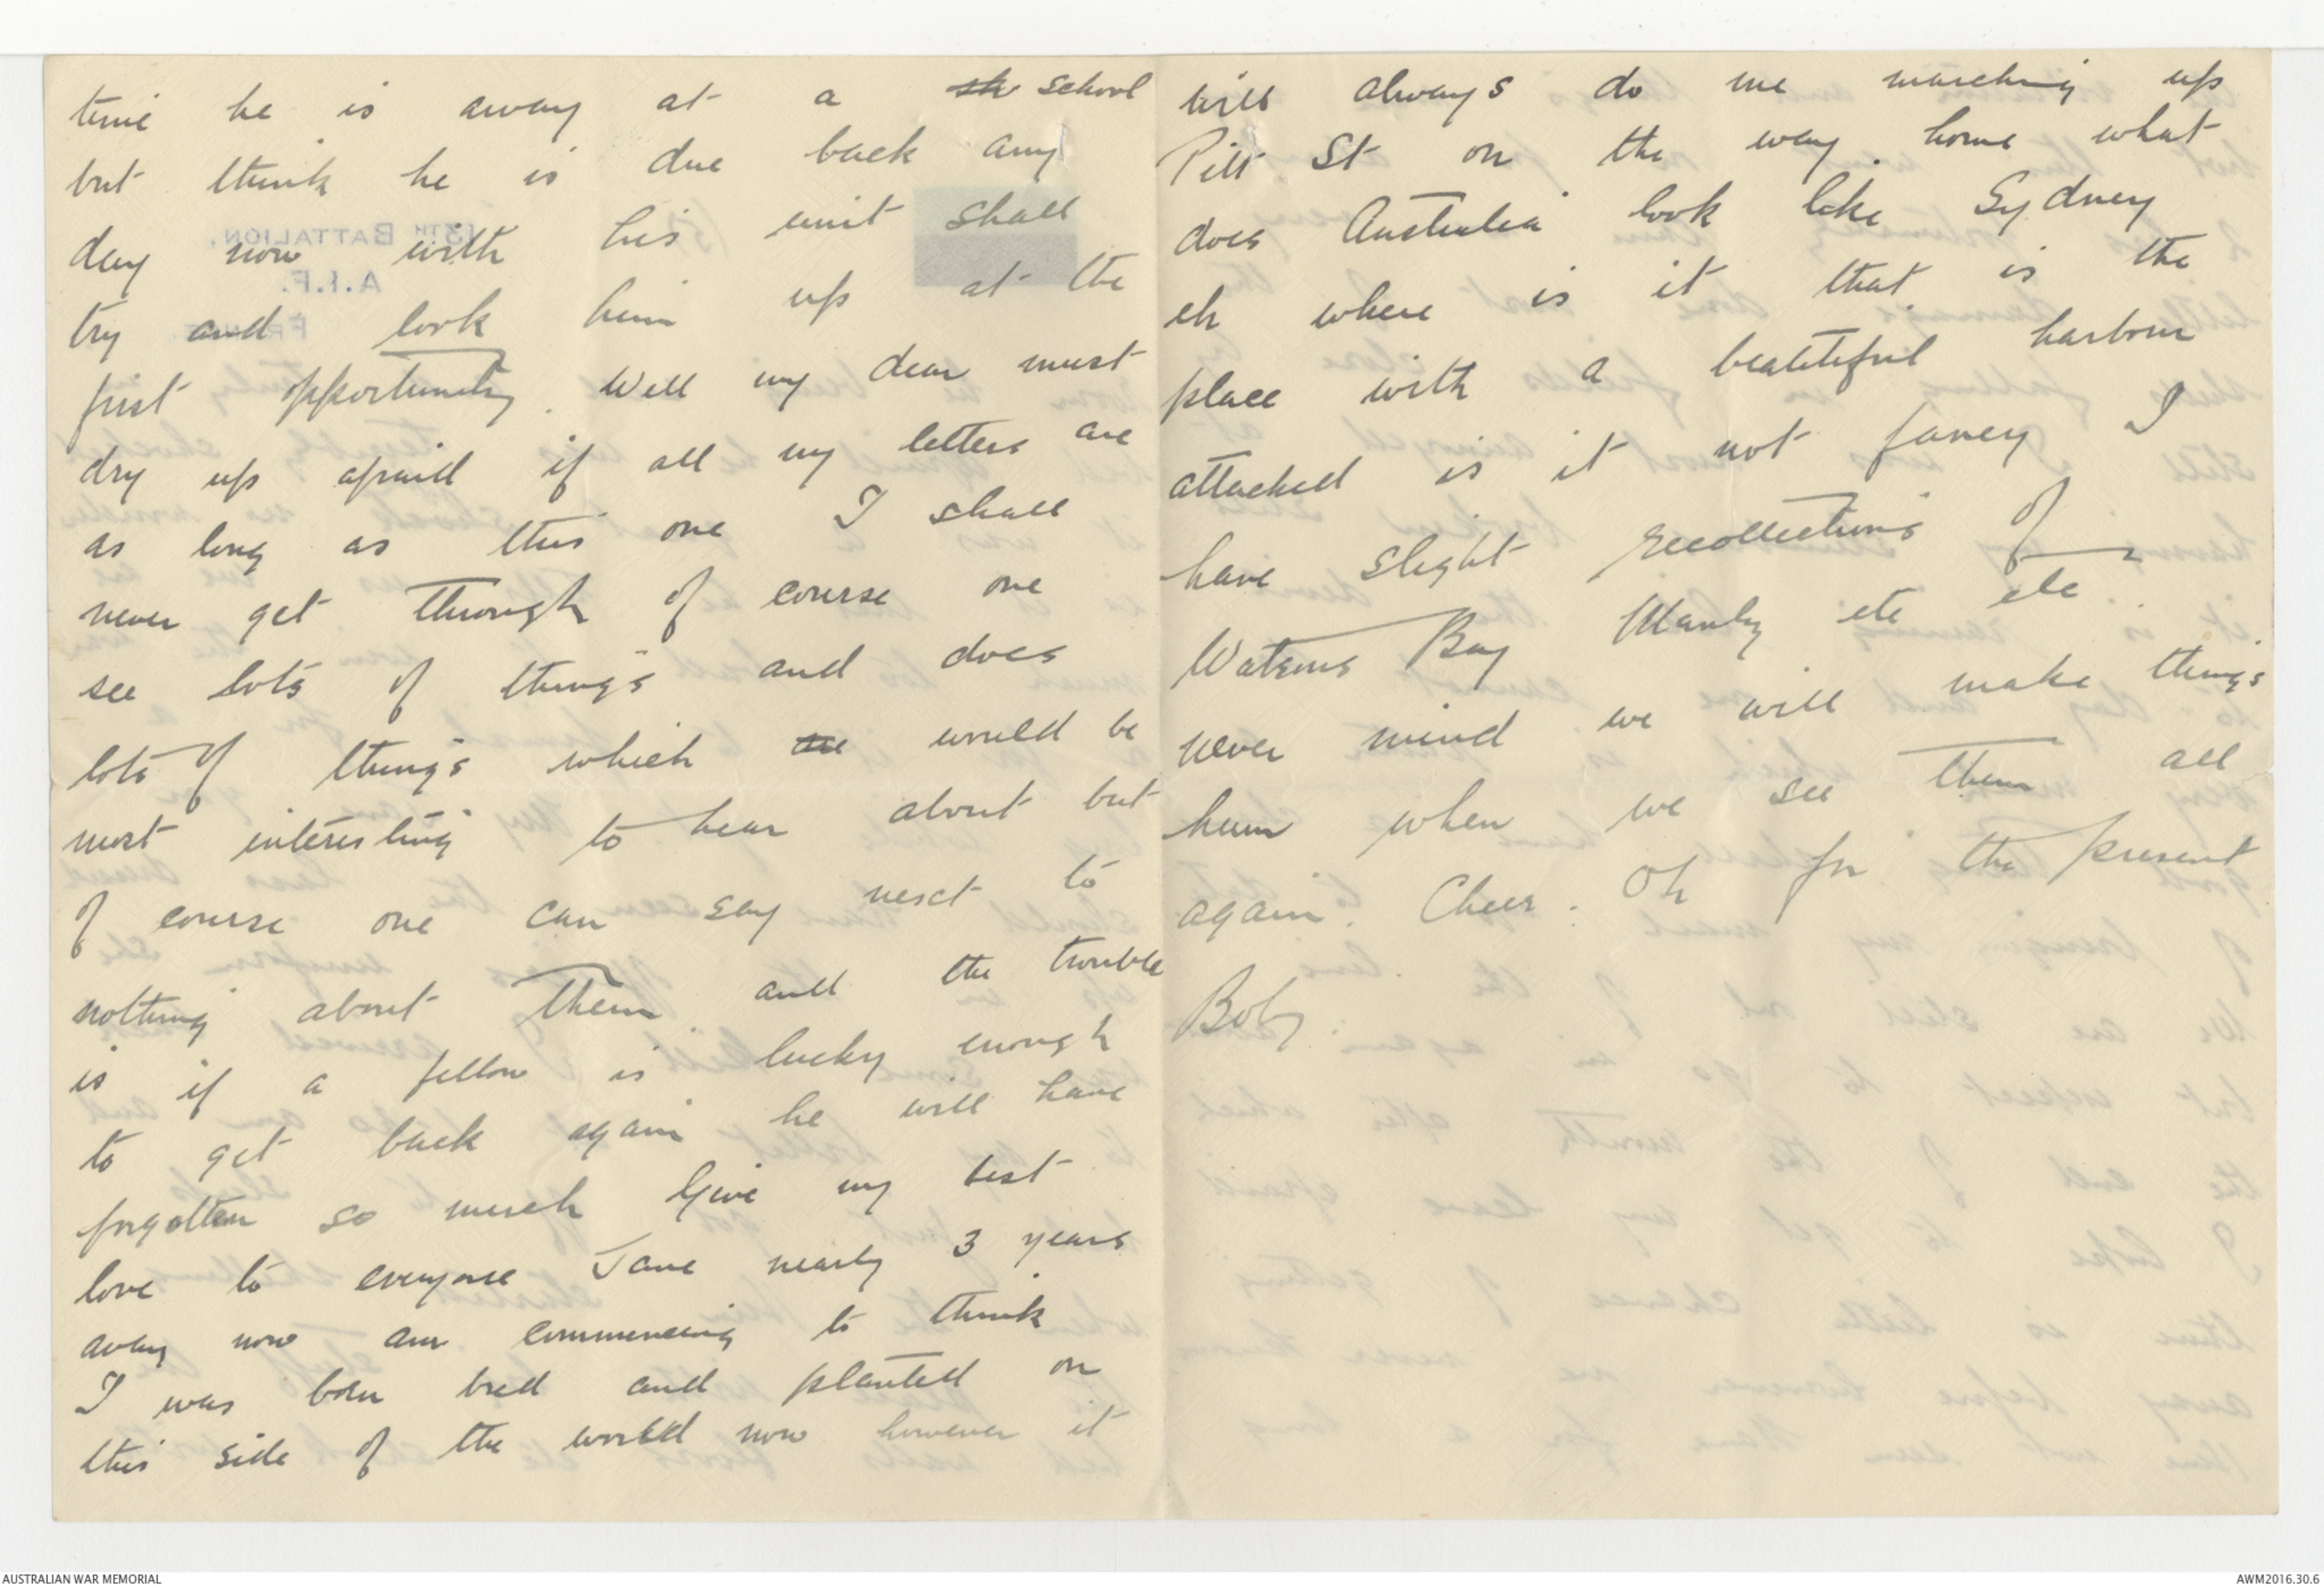 time he is away at a sh school
but think he is due back any
day now with his unit shall
try and look him up at the
first opportunity. Well my dear must
dry up afraid if all my letters are
as long as this one I shall
never get through of course one
see lots of things and does
lots of things which are would be
most interesting to hear about but
of course one can say next to
nothing about them and the trouble
is if a fellow is lucky enough
to get back again he will have
forgotten so much Give my best
love to everyone Jane nearly 3 years
away now am commencing to think
I was born bred and planted on
this side of the world now however it
13TH BATTALION,
A.I.F.
FRANCE.
will always do me marching up
Pitt St on the way home what
does Australia look like Sydney
eh where is it that is the
place with a beatiful harbour
attached is it not fancy I
have slight recollections of
Watsons Bay Manly etc etc.
never mind we will make things
hum when we see them all
again. Cheer. Oh for the present
Boby.
AUSTRALIAN WAR MEMORIAL
AWM2016.30.6